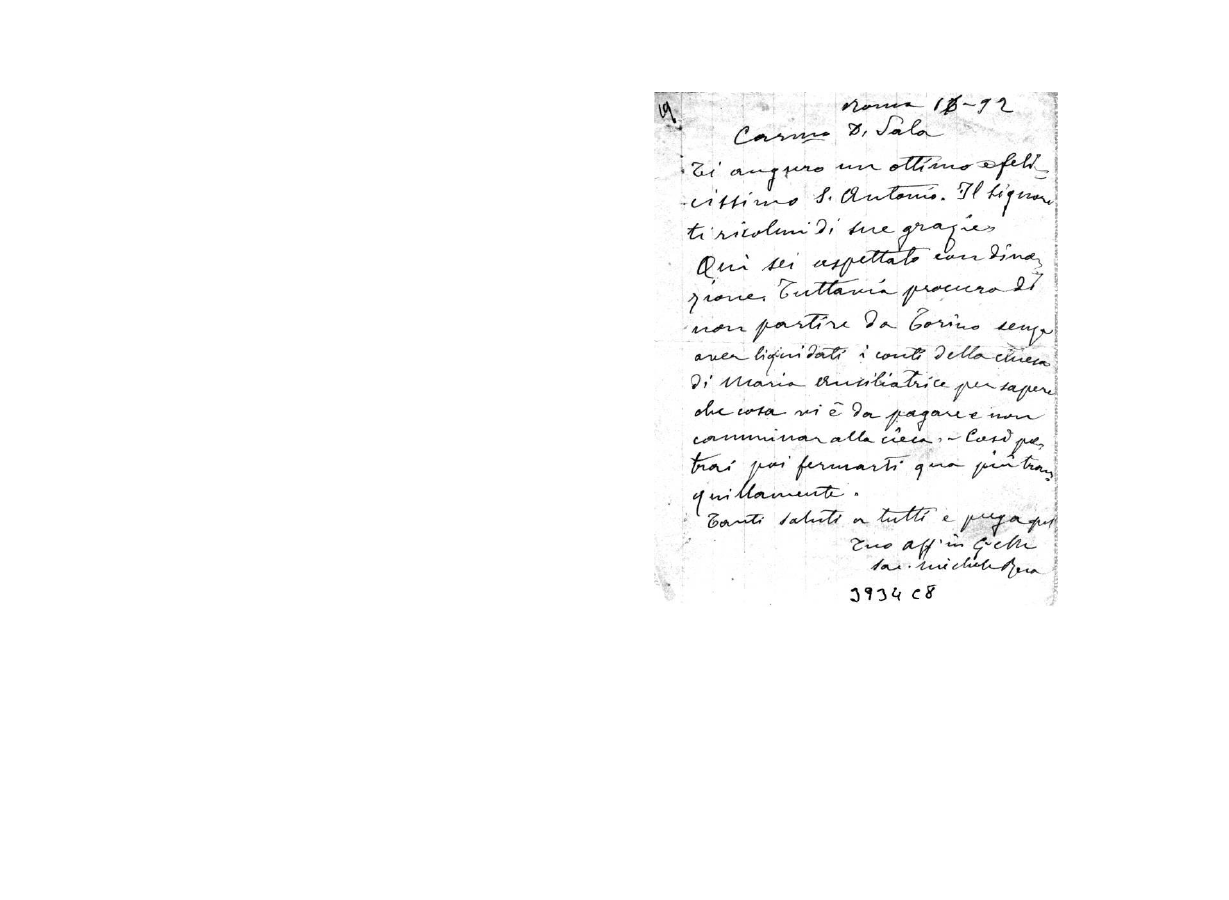 19
Roma 16-92
Carmo D. Sala
Ti auguro un ottimo e feli-
cissimo S. Antonio. Il Signore
ti ricolmi di sue grazie.
Qui sei aspettato con divo-
zione. Tuttavia procura di
non partire da Torino senza
aver liquidati i conti della chiesa
di Maria Ausiliatrice per sapere
che cosa vi è da pagare e non
camminar alla cieca. - Così po-
trai poi fermarti qua più tran-
quillamente.
Tanti saluti a tutti e prega pel
Tuo aff in G. C.
Sac. Michele Rua
3934 C8